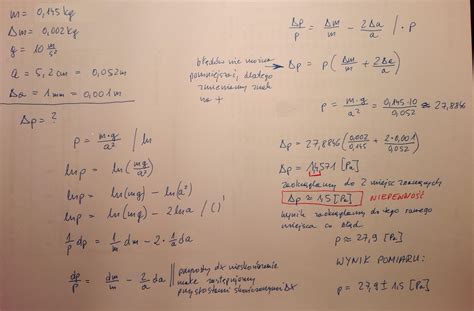 m = 0,145 kg
Δm = 0,002 kg
g = 10 m/s²
a = 5,2 cm = 0,052 m
Δa = 1 mm = 0,001 m
Δp = ?
p = m·g/a² / ln
ln p = ln (mg/a²)
ln p = ln(mg) - ln(a²)
ln p = ln(mg) - 2 ln a / ( )'
1/p dp = 1/m dm - 2·1/a da
dp/p = dm/m - 2/a da // przyrosty dx nieskończenie
małe zastępujemy
przyrostami skończonymi Δx
Δp/p = Δm/m - 2Δa/a / · p
błędów nie można
pomniejszać, dlatego
zmieniamy znak
na +
Δp = p (Δm/m + 2Δa/a)
p = m·g/a² = 0,145·10/0,052² ≈ 27,8846
Δp = 27,8846 (0,002/0,145 + 2·0,001/0,052)
Δp = 1,4571 [Pa]
zaokrąglamy do 2 miejsc znaczących
Δp ≈ 1,5 [Pa] NIEPEWNOŚĆ
wynik zaokrąglamy do tego samego
miejsca co błąd
p ≈ 27,9 [Pa]
WYNIK POMIARU:
p = 27,9 ± 1,5 [Pa]